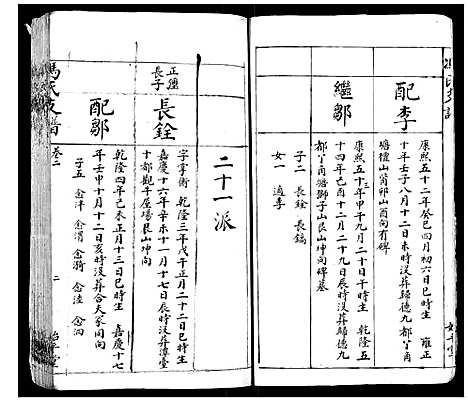 配李
康熙五十二年癸巳四月初六日巳時生　雍正
十年壬子八月十二日未時沒葬歸德九都丫角
塘檀山首卯山酉向有碑
繼鄒
康熙五十三年甲午九月二十日午時生　乾隆五
十四年己酉十二月二十九日辰時沒葬歸德九
都丫角塘獅子山艮山坤向碑墓
子二　長銓　長鎬
女一　適李
二十一派
正纏長子
長銓
字掌衡　乾隆三年戊午正月二十二日時生
嘉慶十六年辛未十一月十七日辰時沒葬潭臺
十都觀平屋場艮山坤向
配鄒
乾隆四年己未正月十三日巳時生　嘉慶十七
年壬申十月十二日亥時沒葬合夫冢同向
子五　念泮　念渭　念漪　念洼　念泗
馮氏支譜
卷二
二